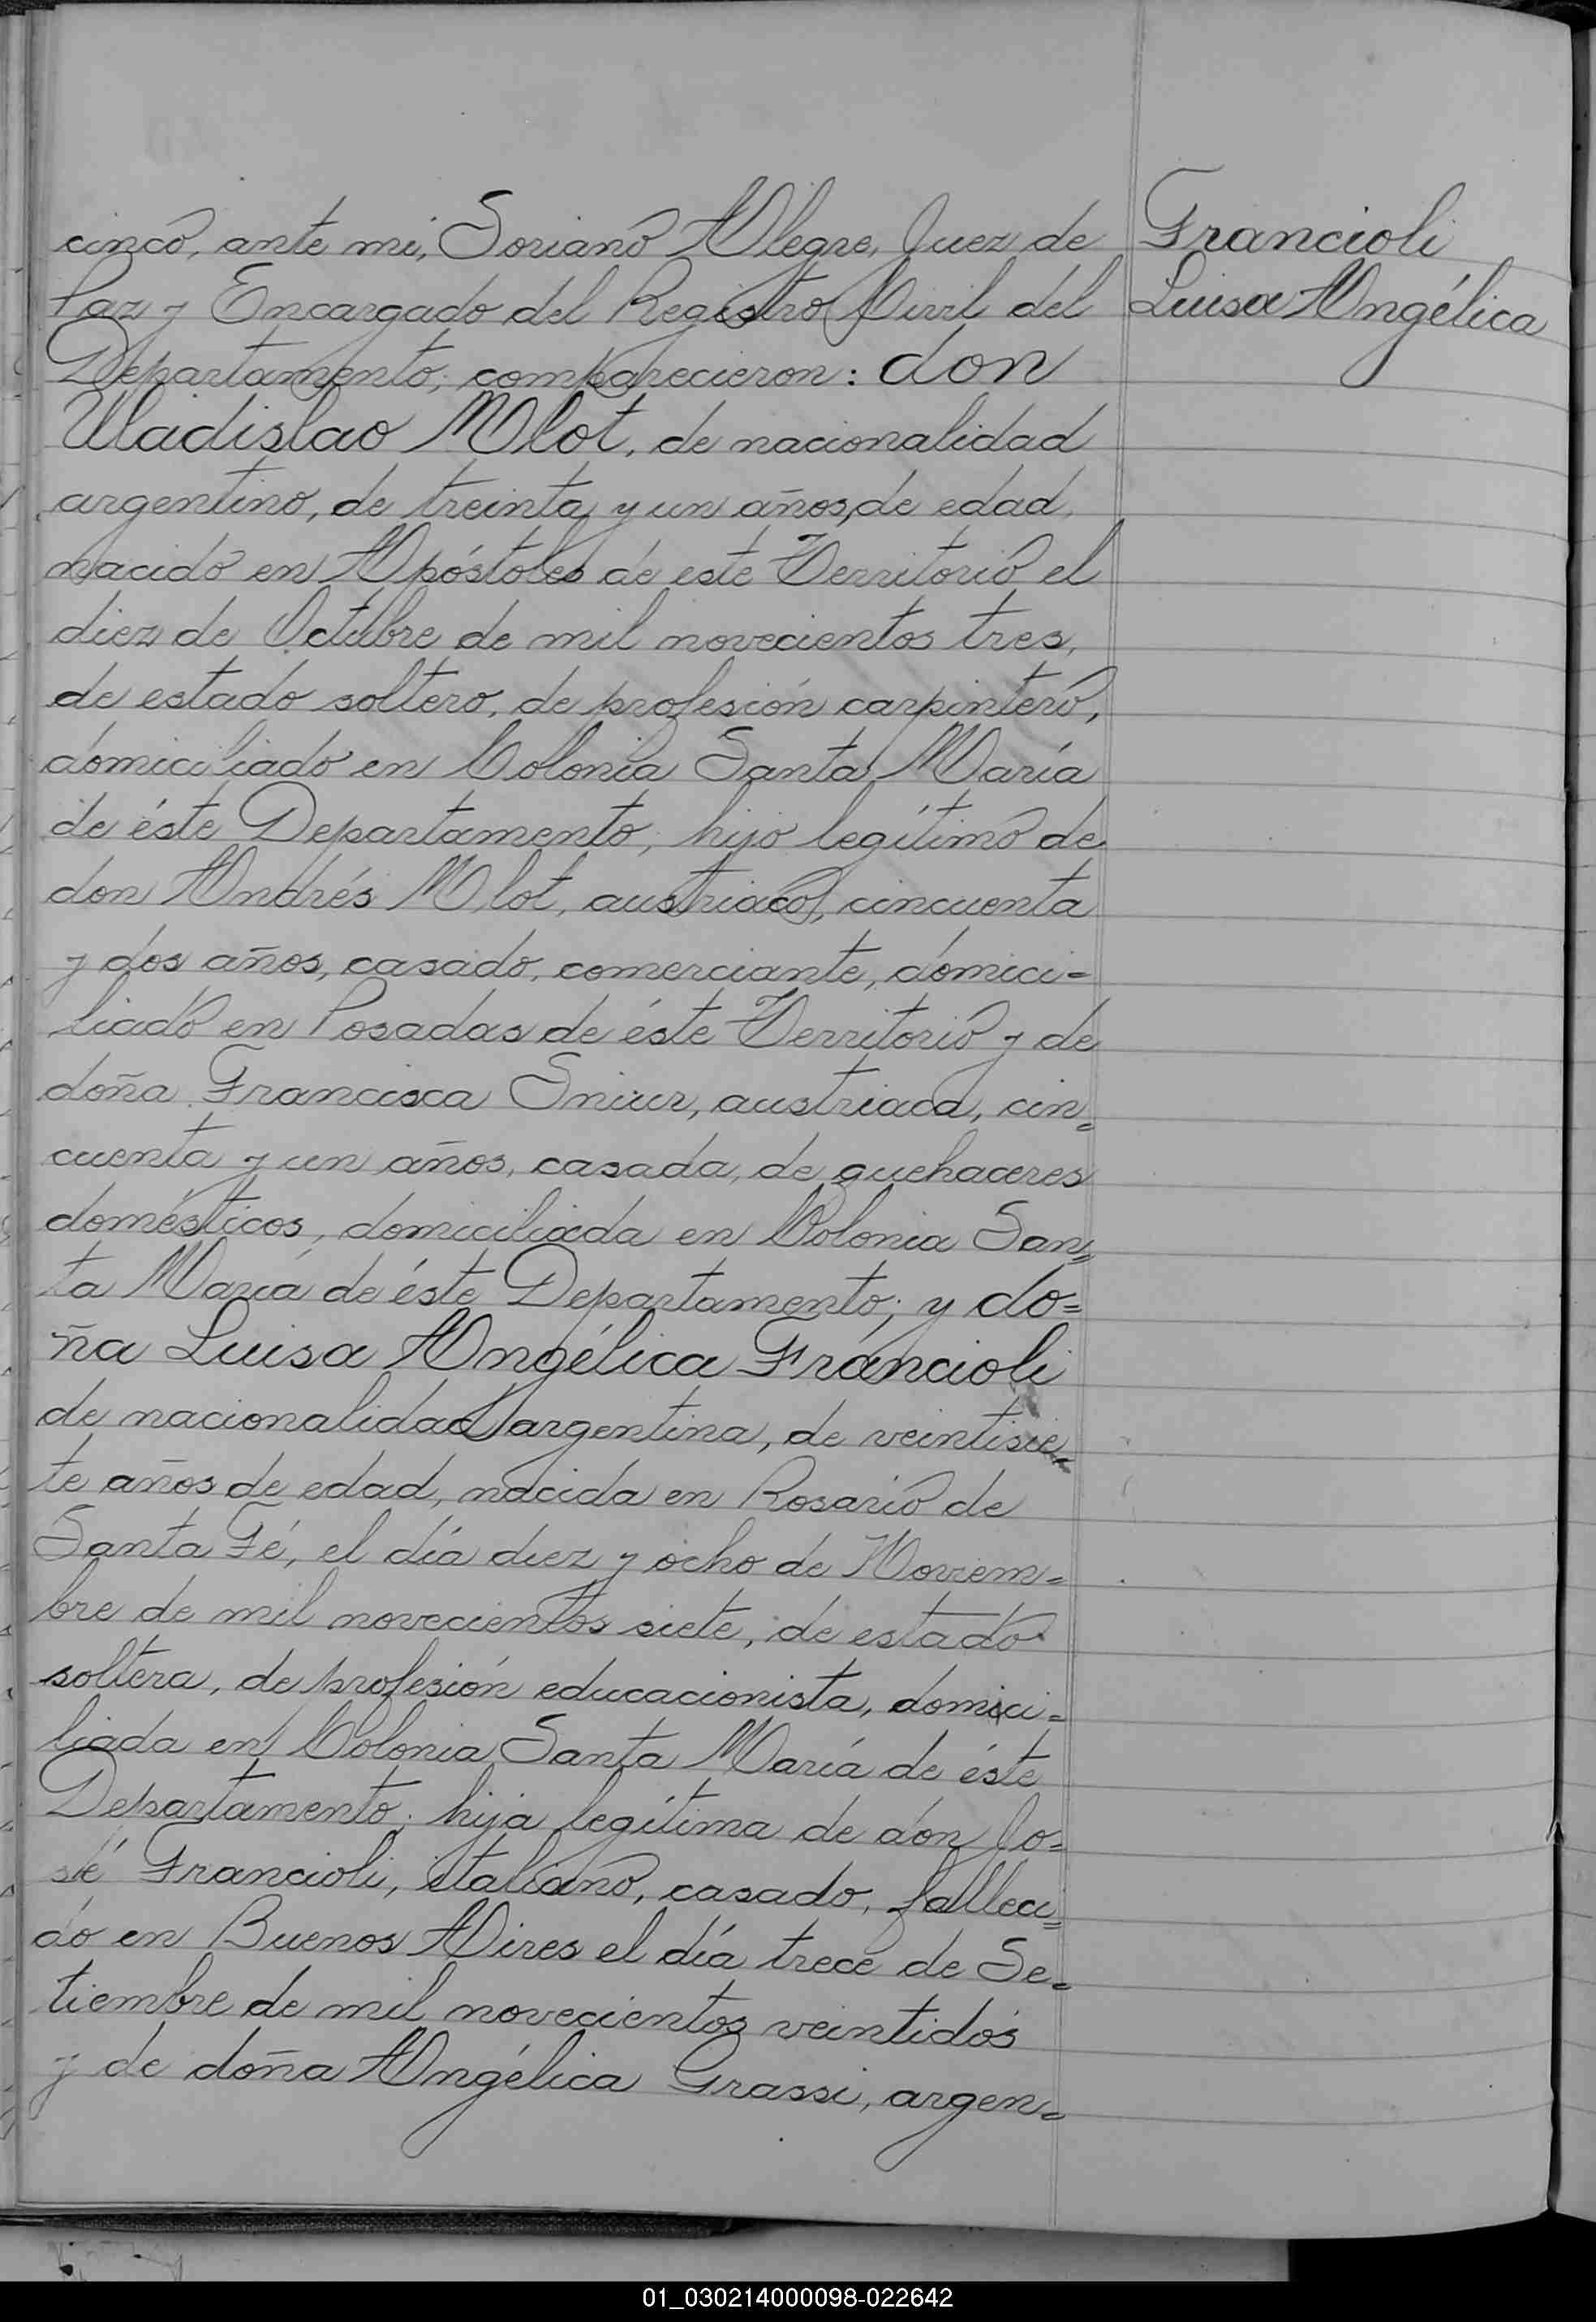 cinco, ante mi, Soriano Alegre, Juez de
Paz y Encargado del Registro Civil del
Departamento; comparecieron: don
Uladislao Mlot, de nacionalidad
argentino, de treinta y un años, de edad,
nacido en Apóstoles de este Territorio el
diez de Octubre de mil novecientos tres,
de estado soltero, de profesión carpintero,
domiciliado en Colonia Santa María
de éste Departamento; hijo legítimo de
don Andrés Mlot, austriaco, cincuenta
y dos años, casado, comerciante, domici=
liado en Posadas de éste Territorio y de
doña Francisca Sniur, austriaca, cin=
cuenta y un años, casada, de quehaceres
domésticos, domiciliada en Colonia San=
ta María de éste Departamento; y do=
ña Luisa Angélica Francioli
de nacionalidad argentina, de veintisie=
te años de edad, nacida en Rosario de
Santa Fé, el día diez y ocho de Noviem=
bre de mil novecientos siete, de estado
soltera, de profesión educacionista, domici=
liada en Colonia Santa María de éste
Departamento; hija legítima de don Jo=
sé Francioli, italiano, casado, falleci=
do en Buenos Aires el día trece de Se=
tiembre de mil novecientos veintidós
y de doña Angélica Grassi, argen=
Francioli
Luisa Angélica
01_030214000098-022642